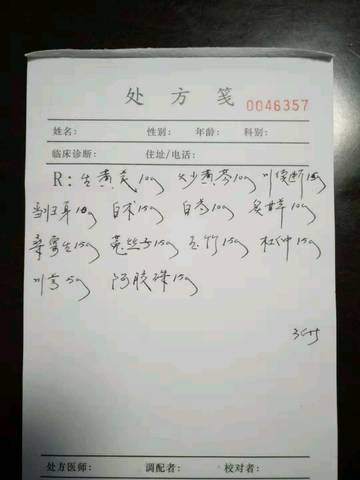 处方笺 0046357
姓名: 性别: 年龄: 科别:
临床诊断: 住址/电话:
R: 生黄芪10g 炒黄芩10g 川续断15g
当归身10g 白术15g 白芍10g 炙甘草10g
桑寄生15g 菟丝子15g 玉竹15g 杜仲15g
川芎5g 阿胶珠15g
3付
处方医师: 调配者: 校对者: